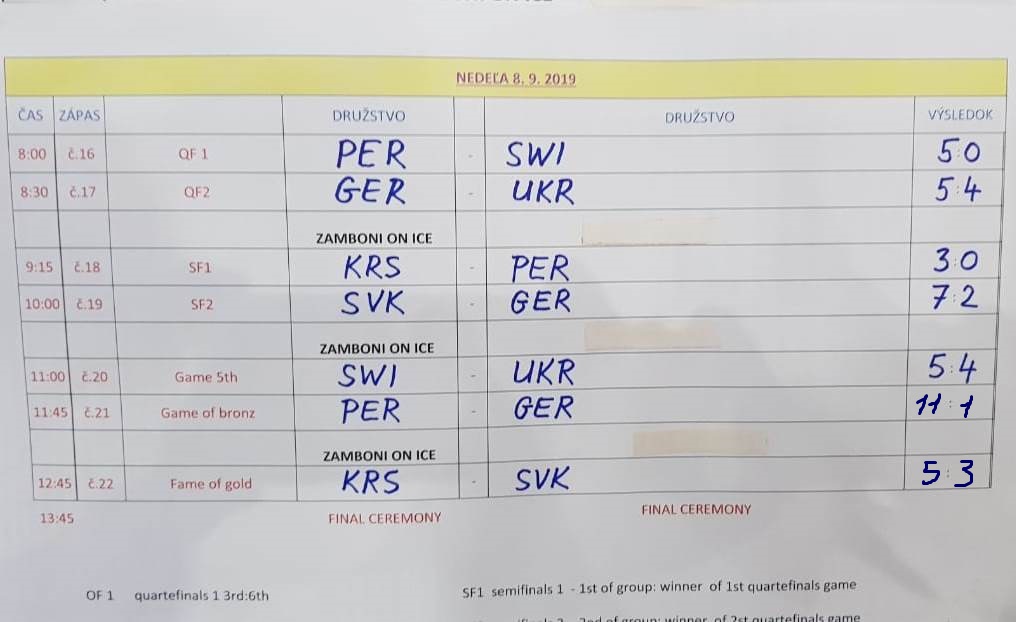 NEDEĽA 8. 9. 2019
ČAS ZÁPAS DRUŽSTVO DRUŽSTVO VÝSLEDOK
8:00 č.16 QF 1 PER - SWI 5:0
8:30 č.17 QF2 GER - UKR 5:4
ZAMBONI ON ICE
9:15 č.18 SF1 KRS - PER 3:0
10:00 č.19 SF2 SVK - GER 7:2
ZAMBONI ON ICE
11:00 č.20 Game 5th SWI - UKR 5:4
11:45 č.21 Game of bronz PER - GER 11:1
ZAMBONI ON ICE
12:45 č.22 Fame of gold KRS - SVK 5:3
13:45 FINAL CEREMONY FINAL CEREMONY
OF 1 quartefinals 1 3rd:6th SF1 semifinals 1 - 1st of group: winner of 1st quartefinals game
2nd of group: winner of 2st quartefinals game